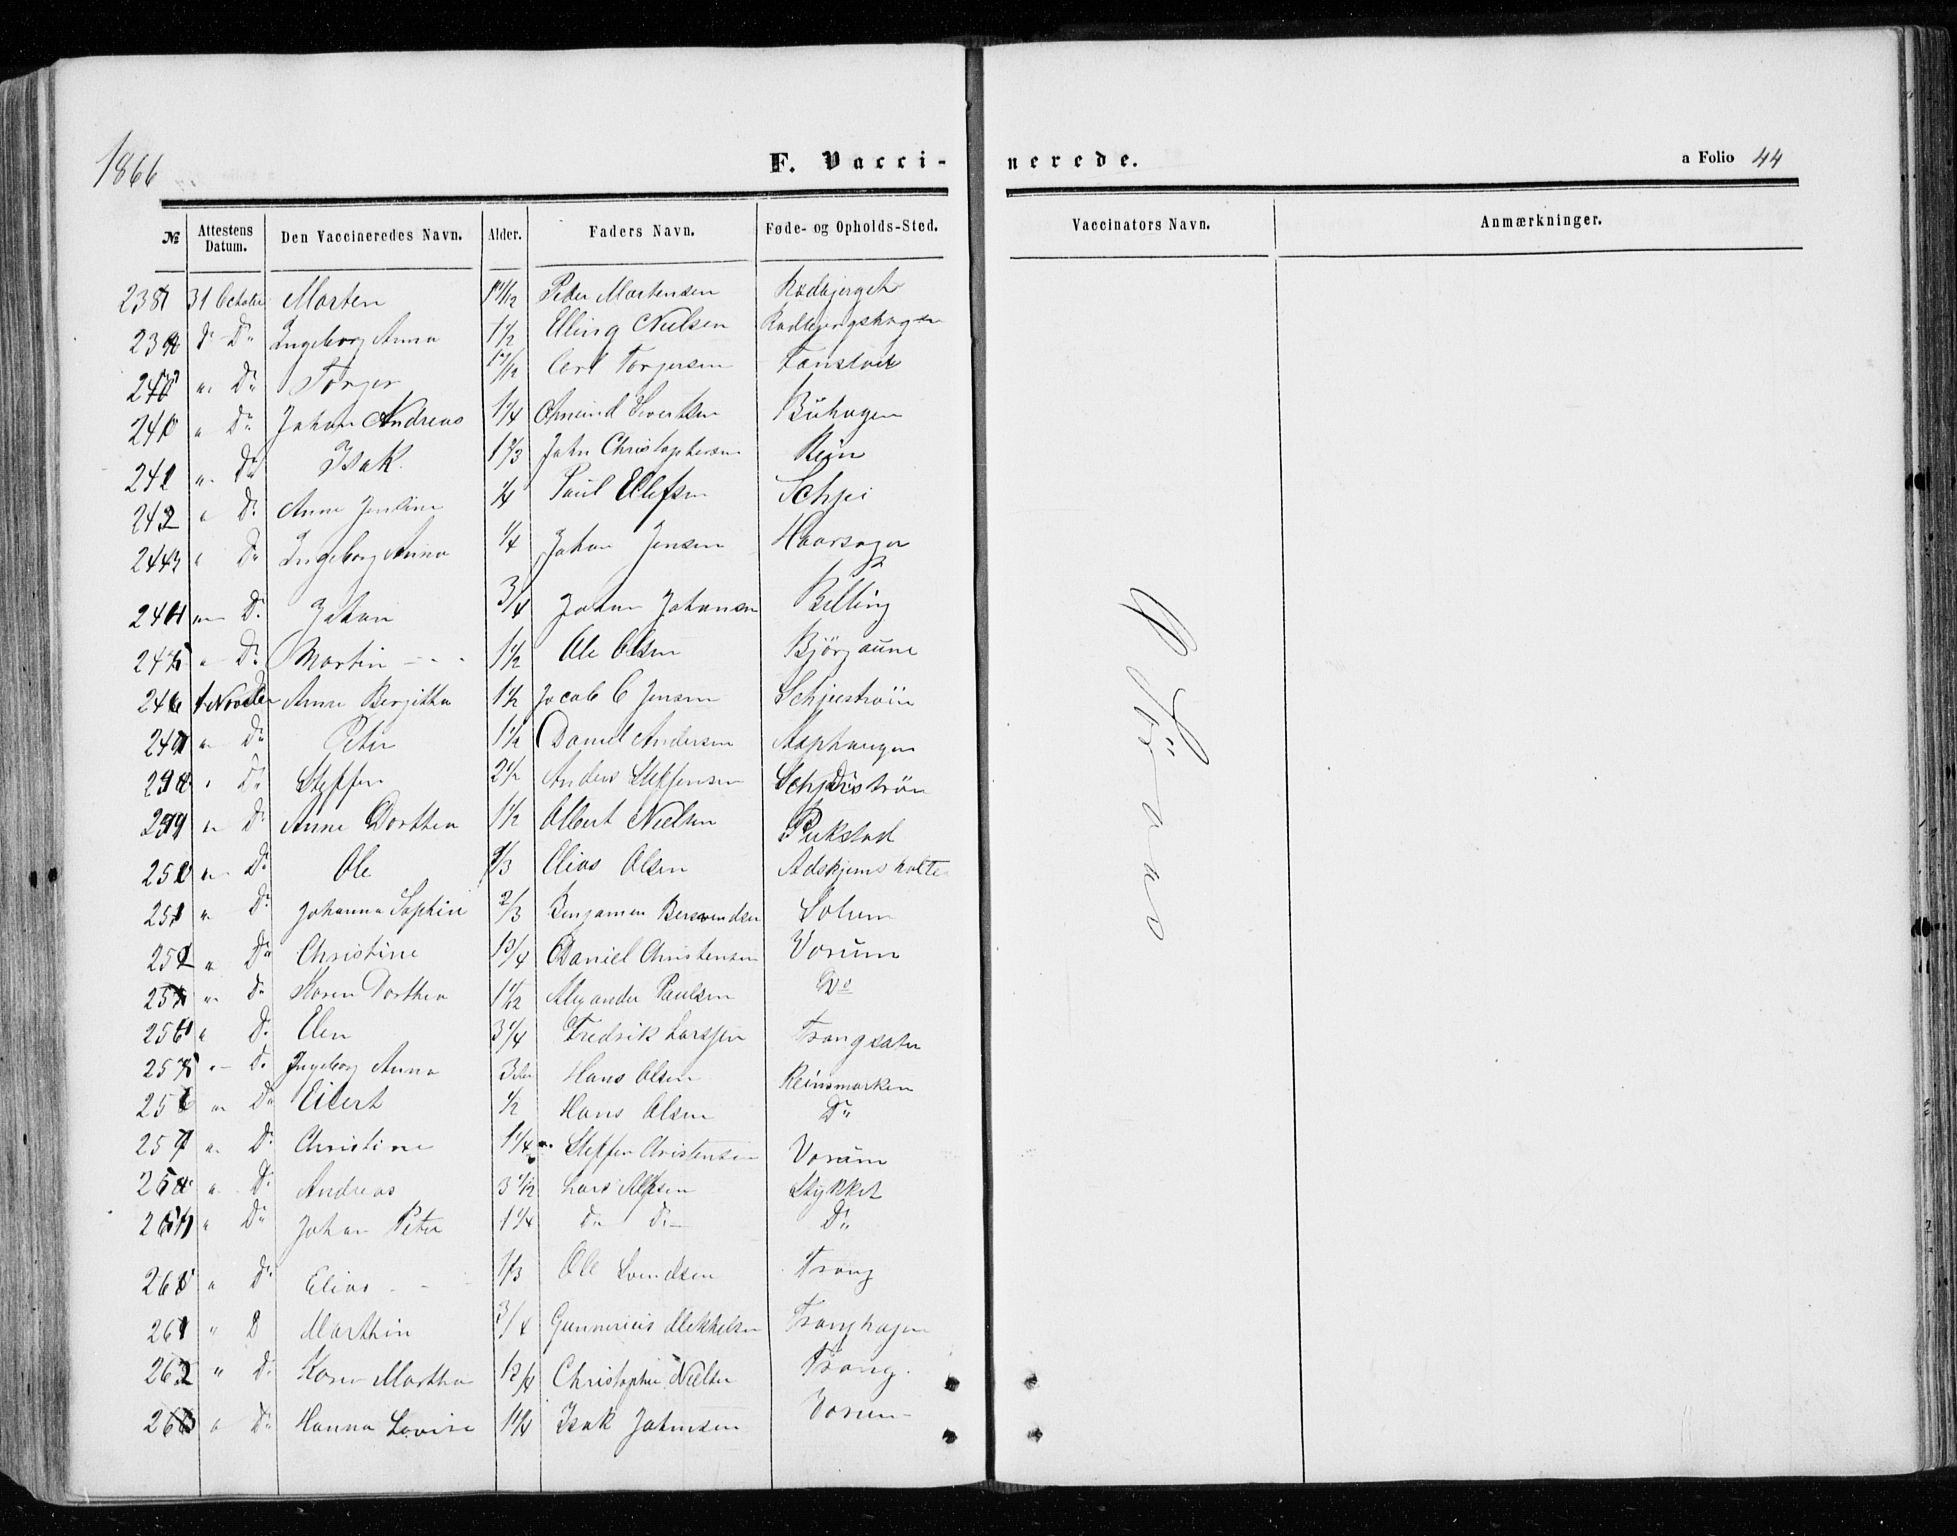 1866
F. Vacci- nerede. a Folio 44
№ Attestens Datum. Den Vaccineredes Navn. Alder. Faders Navn. Føde- og Opholds-Sted. Vaccinators Navn. Anmærkninger.
238 31 October Morten 1 1/12 Peder Mortensen Rødbjerget
239 D. Do Ingeborg Anna 1 1/2 Elling Nielsen
240 " Do Torger Carl Torgersen
240 " Do Johan Andreas 1 1/4 Amund Sivertsen Buhagen
241 " Do Isak 1 1/3 John Christophersen Rein
242 " Do Anne 1/4 Paul Ellefsen Schjei
243 " Do Ingeborg Anna 1/4 Johan Jensen Haarsager
244 " Do Johan 3/4 Johan Johansen Billing
245 " Do Martin - - - 1 1/2 Ole Olsen Bjørgaune
246 1 November Anne Bergitha 1 1/2 Jacob C Jensen Schjeistrøn
247 " Do Peter 1 1/2 Daniel Andersen Asphaugen
248 " Do Steffen 2 1/2 Anders Steffensen Schjeistrøn
249 " Do Anne Dorthea 1 1/2 Albert Nielsen Pukstad
250 " Do Ole 1/3 Elias Olsen Adskjemsholte
251 " Do Johanna Sophie 2/3 Benjamin Bersvendsen Solum
252 " Do Christine 1 3/4 Daniel Christensen Vorum
253 " Do Karen Dorthea 1 1/12 Alexander Paulsen Do
254 " Do Elen 3 1/4 Fredrik Larssen Trangsater
255 " - Do Ingeborg Anna 3 Hans Olsen Reinsmarken
256 " Do Eilert 1/2 Hans Olsen Do
257 " Do Christine 1 1/4 Steffen Christensen Vorum
258 " Do Andreas 3 1/2 Lars Stykket
259 " Do Johan Peter 1 1/4 do do - Do
260 " Do Elias - - 1/3 Ole Svendsen Trang
261 " D Marthin 3/4 Gunnerius Mekkelsen Tranghagen
262 " Do Karen Martha 1 2/4 Christopher Nielsen Trang.
263 " Do Hanna Lovise 1 1/4 Isak Johnsen Vorum -